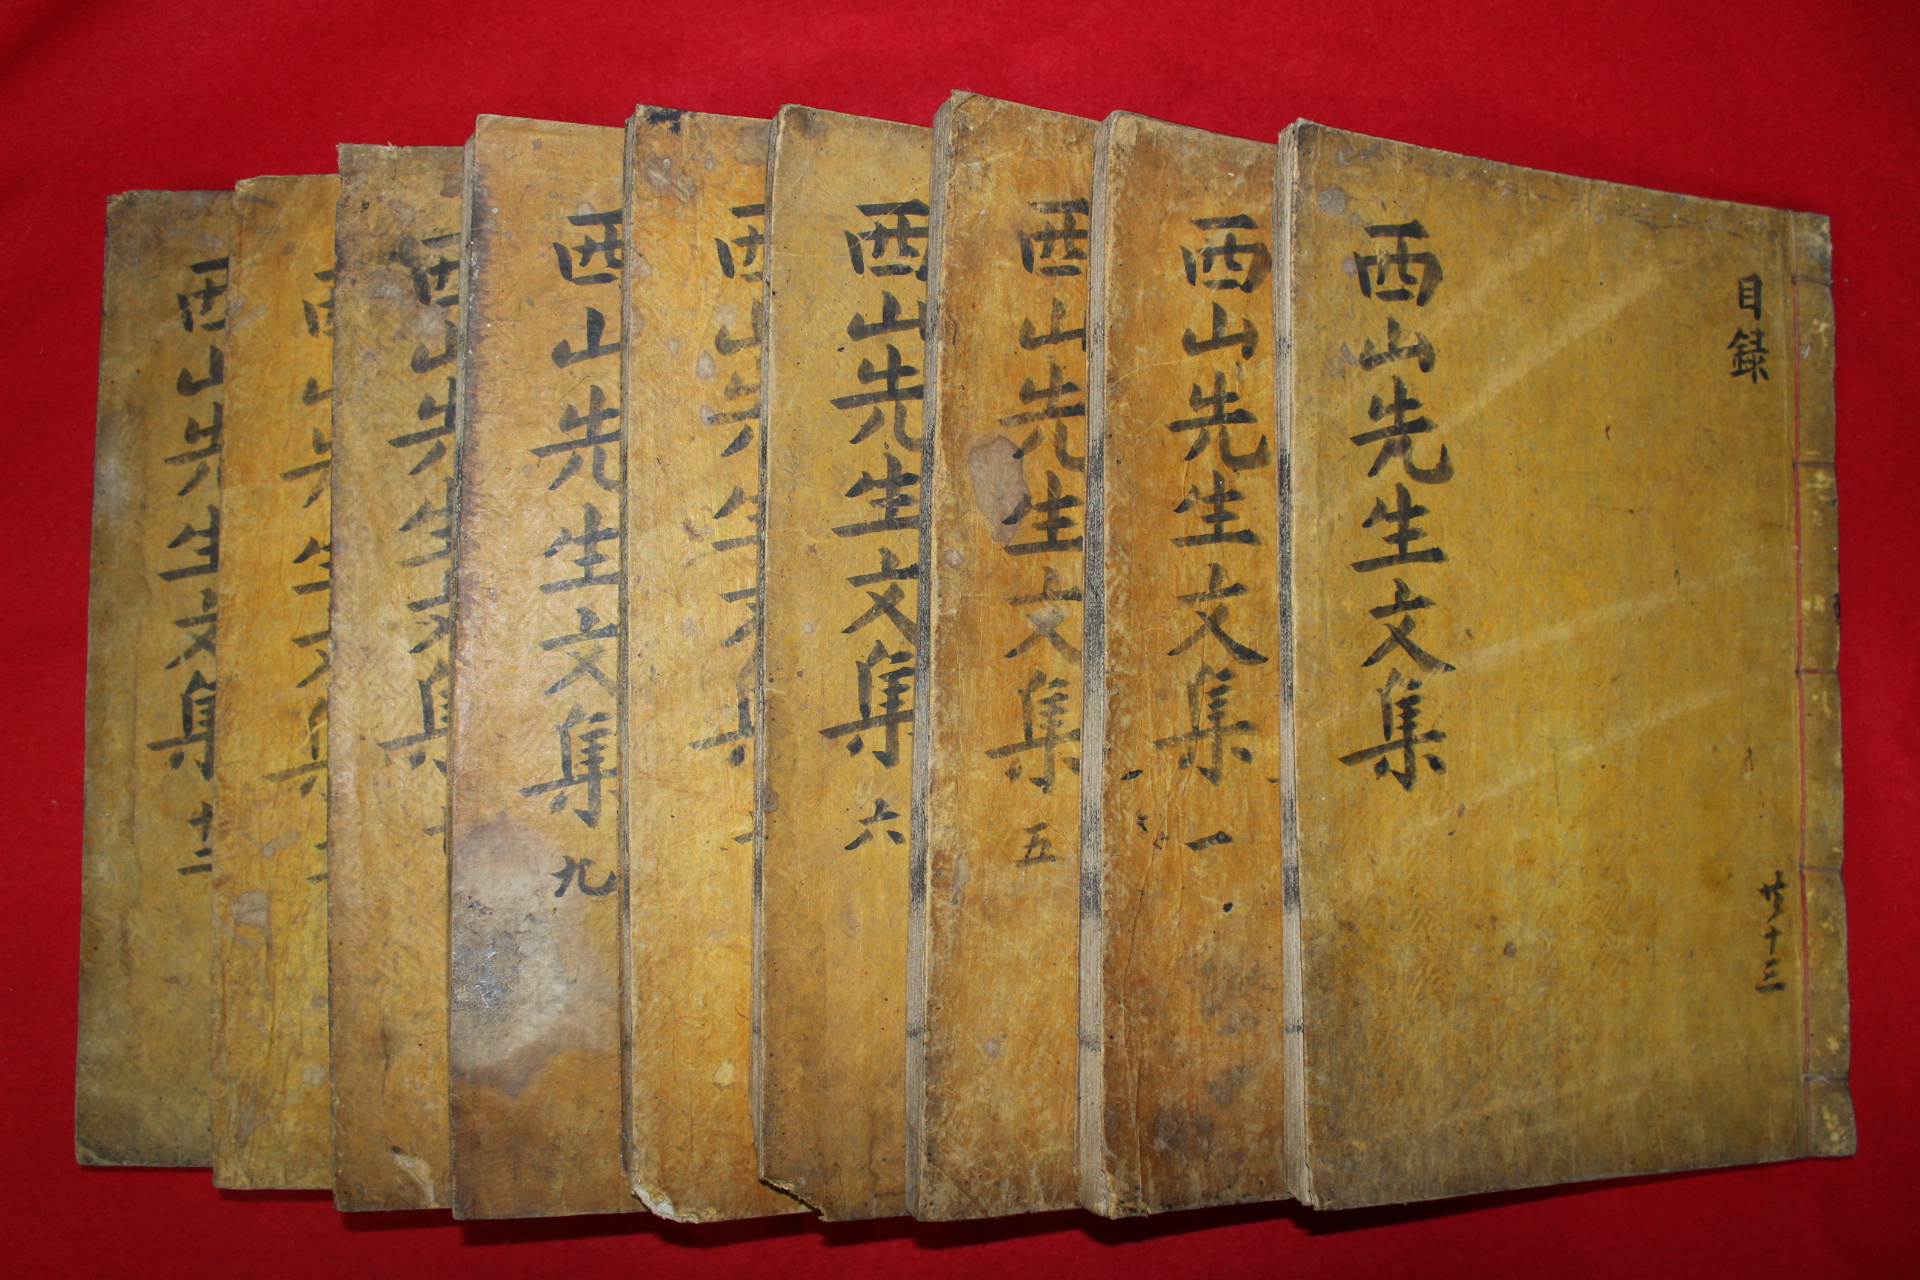 目録
共十三
西山先生文集
西山先生文集 一
西山先生文集 五
西山先生文集 六
西山先生文集
西山先生文集 九
西山先生文集
西山先生文集
西山先生文集 十二